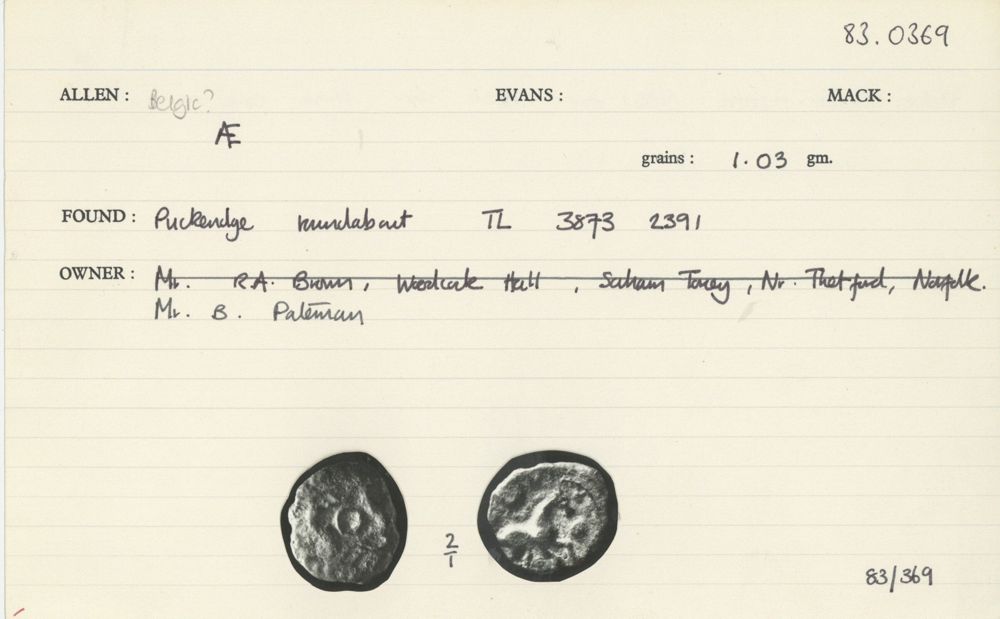 83.0369
ALLEN : Belgic? EVANS : MACK :
Æ
grains : 1.03 gm.
FOUND : Puckeridge roundabout TL 3873 2391
OWNER : Mr. R.A. Brown, Woodcock Hall, Saham Toney, Nr. Thetford, Norfolk.
Mr. B. Pateman
2/1
83/369